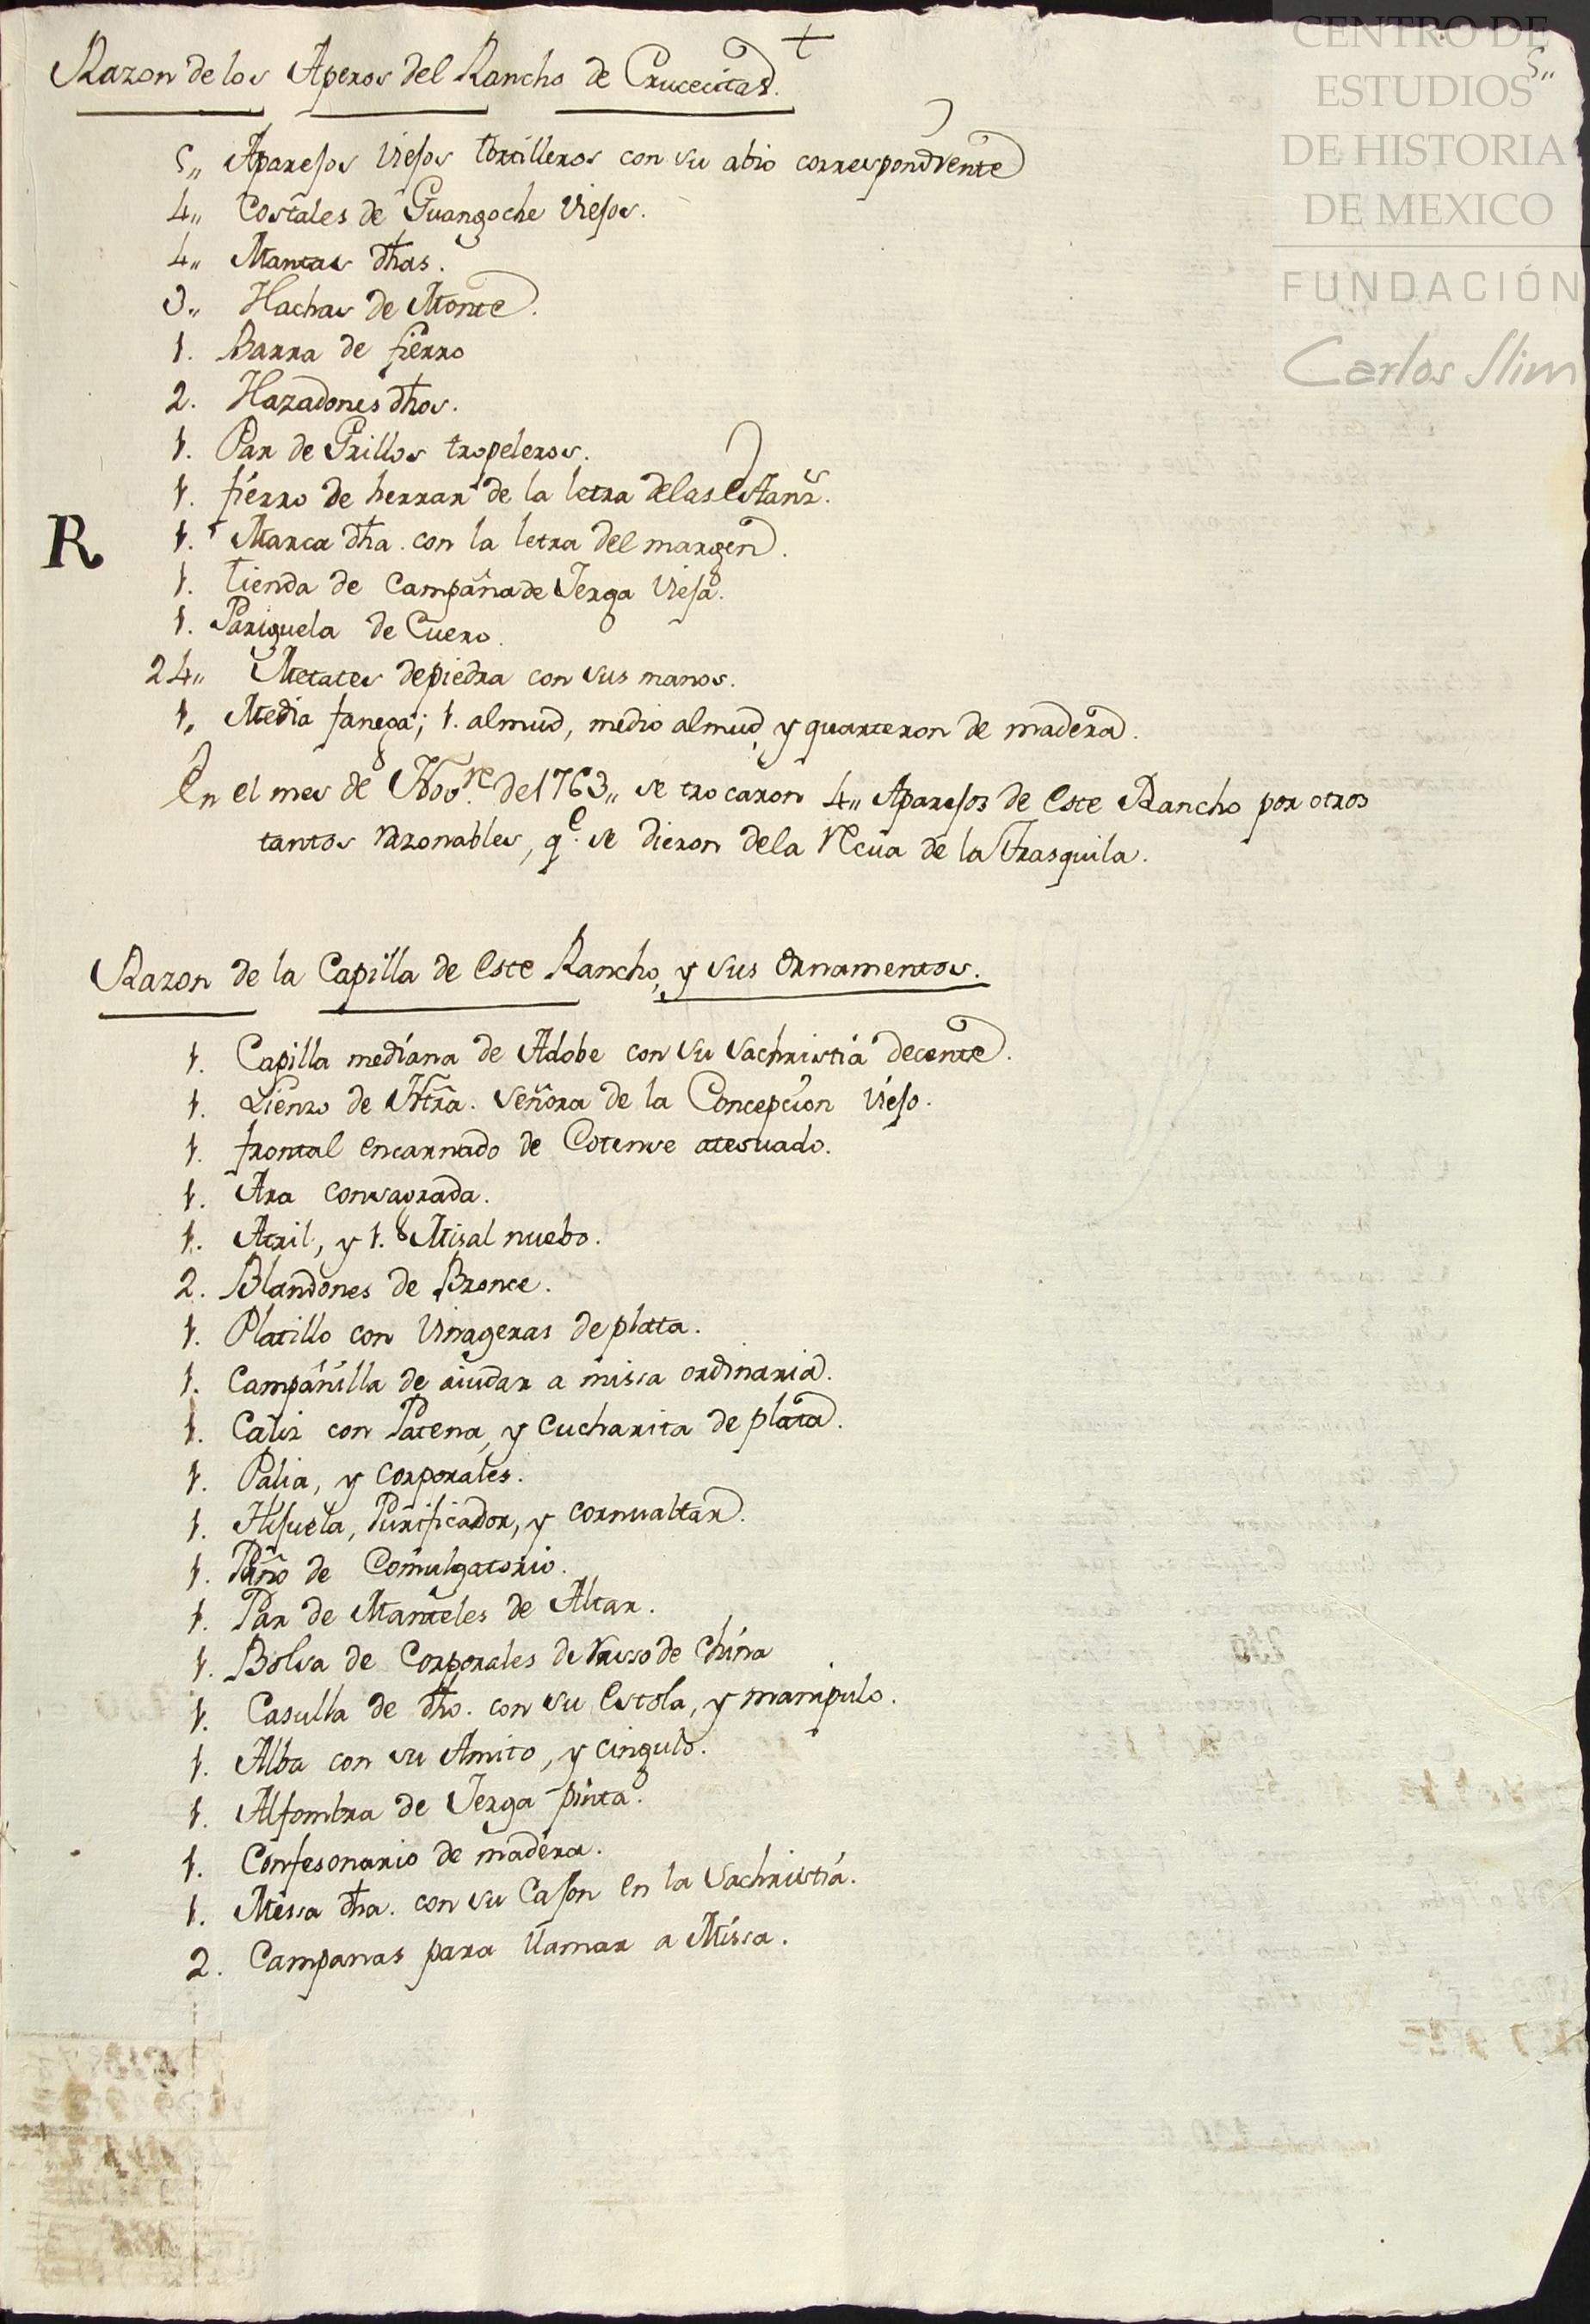 CENTRO DE
ESTUDIOS
DE HISTORIA
DE MEXICO
FUNDACIÓN
Carlos Slim
5,,
Razon de los Aperos del Rancho de Crucecitas.
5,, Aparejos viejos tortilleros con su abio correspondiente
4,, Costales de Guangoche viejos.
4,, Mantas dhas.
3,, Hachas de Monte.
1. Barra de fierro
2. Hazadones dhos.
1. Par de Grillos tropeleros.
1. fierro de herrar de la letra de las
R 1. Marca dha. con la letra del margen.
1. Tienda de Campaña de Jerga vieja.
1. Pariguela de Cuero.
24,, Metates de piedra con sus manos.
1,, Media fanega; 1. almud, medio almud, y quarteron de madera.
En el mes de Nov.re de 1763,, se trocaron 4,, Aparejos de este Rancho por otros
tantos razonables, q.e se dieron de la recua de la Trasquila.
Razon de la Capilla de este Rancho, y sus Ornamentos.
1. Capilla mediana de Adobe con su Sachristia decente.
1. Lienzo de Ntra. Señora de la Concepcion viejo.
1. frontal encarnado de Cotense atesuado.
1. Ara consagrada.
1. Atril, y 1. Misal nuebo.
2. Blandones de Bronce.
1. Platillo con Vinageras de plata.
1. Campanilla de aiudar a missa ordinaria.
1. Caliz con Patena, y Cucharita de plata.
1. Palia, y Corporales.
1. Hijuela, Purificador, y cornualtar.
1. Paño de Comulgatorio.
1. Par de Manteles de Altar.
1. Bolsa de Corporales de razo de China
1. Casulla de dho. con su Estola, y manipulo.
1. Alba con su Amito, y cingulo.
1. Alfombra de Jerga pinta.
1. Confesonario de madera.
1. Messa dha. con su Cajon en la Sachristia.
2. Campanas para llamar a Missa.